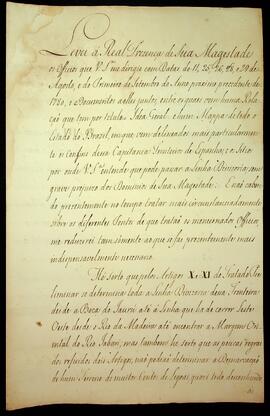 Levei á Real Prezença de Sua Magestade
os Officios que V. S.ª me dirigio com Datas de 11, 25, 26, 26, e 29 de
Agosto, e do Primeiro de Setembro do Anno proximo precedente de
1780, e os Documentos a elles juntos, entre os quaes vem huma Rela
ção que tem por titulo = Idea Geral = e hum Mappa de todo o
Estado do Brazil, em que vem delineados mais particularmente
os Confins dessa Capitania Fronteiros de Espanha; e o Sitio
por onde V. S.ª entende que pode passar a Linha Divizoria, sem
grave prejuizo dos Dominios de Sua Magestade: E não caben
do prezentemente no tempo tratar mais circunstanciadamente
sobre os differentes Pontos de que tratão os mencionados Officios,
me reduzirei tam sómente ao que se faz prezentemente mais
indispensavelmente necessario.
He certo que pelos Artigos X. e XI. do Tratado Pre
liminar se determina toda a Linha Divizoria dessa Fronteira
desde a Boca do Jaurú até a Linha que ha de correr Leste
Oeste desde o Rio da Madeira até encontrar a Margem Ori
ental do Rio Jabari; mas tambem he certo que as poucas regras
dos referidos dois Artigos, não podem determinar a Demarcação
de hum Terreno de muitos Centos de Legoas quazi todo desconhecido